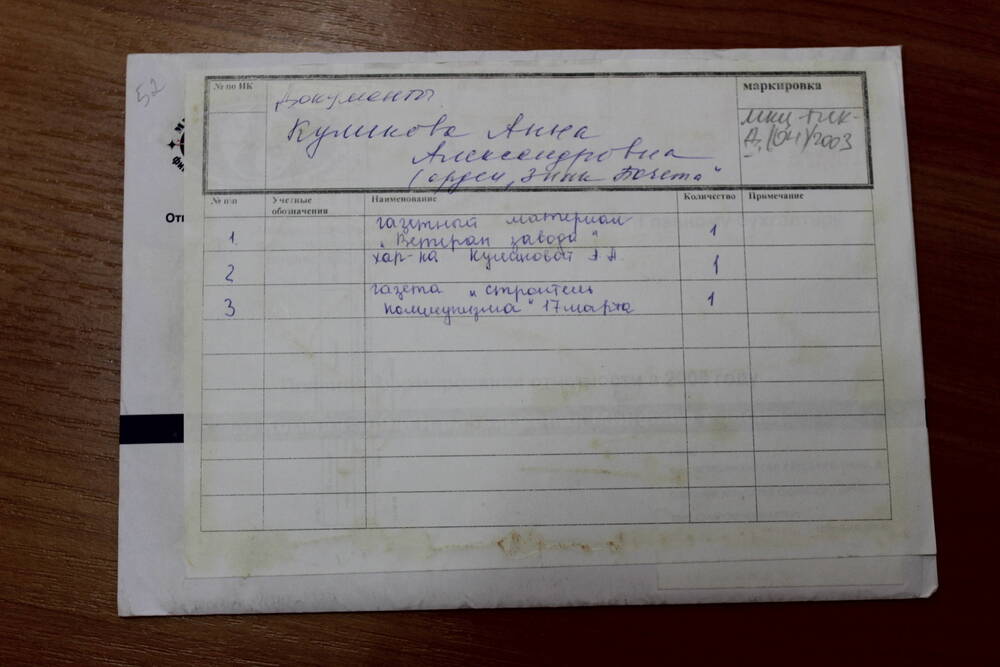 52
№ по ИК
Документы
маркировка
Куликова Анна
Александровна
(орден „Знак Почета"
Д (04) 2003
№ п/п
Учетные
обозначения
Наименование
Количество
Примечание
От
1
газетный материал
„Ветеран завода"
1
2
хар-ка Куликовой А А
1
3
газета „Строитель
коммунизма" 17 марта
1